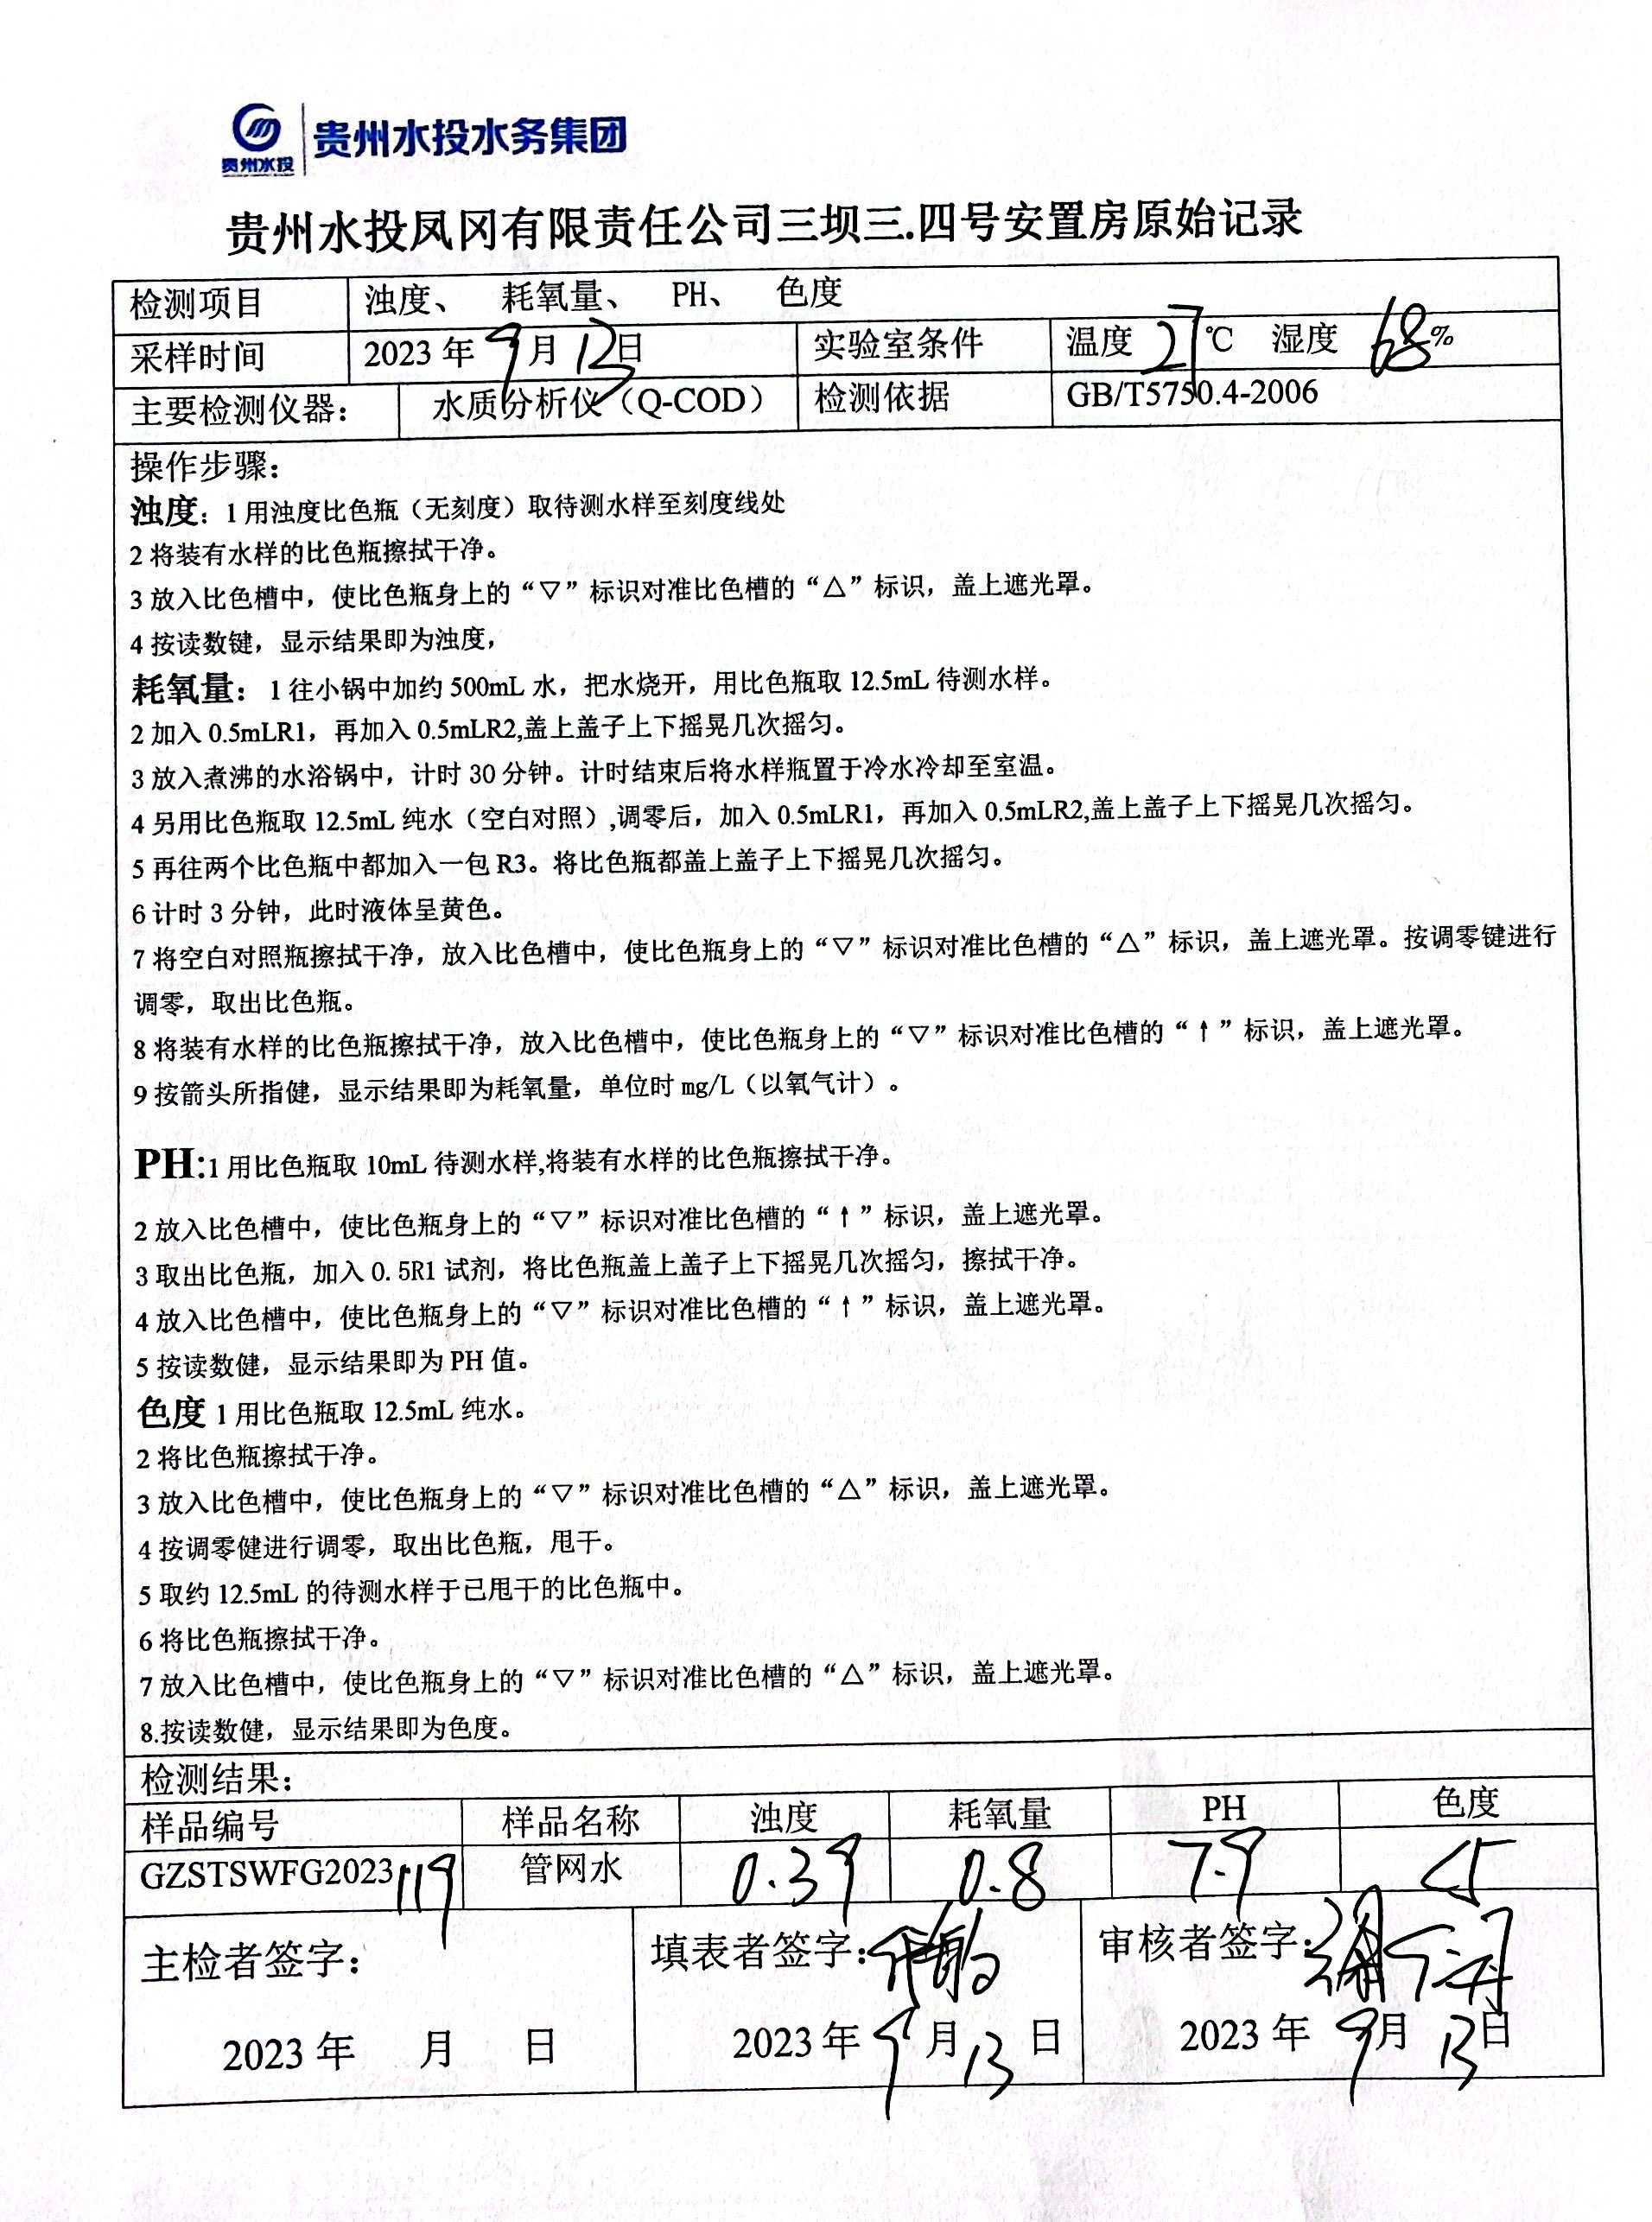 贵州水投 贵州水投水务集团
贵州水投凤冈有限责任公司三坝三.四号安置房原始记录
检测项目 浊度、 耗氧量、 PH、 色度
采样时间 2023 年 9 月 13 日 实验室条件 温度 27 ℃ 湿度 68 %
主要检测仪器： 水质分析仪（Q-COD） 检测依据 GB/T5750.4-2006
操作步骤：
浊度：1 用浊度比色瓶（无刻度）取待测水样至刻度线处
2 将装有水样的比色瓶擦拭干净。
3 放入比色槽中，使比色瓶身上的“▽”标识对准比色槽的“△”标识，盖上遮光罩。
4 按读数键，显示结果即为浊度，
耗氧量：1 往小锅中加约 500mL 水，把水烧开，用比色瓶取 12.5mL 待测水样。
2 加入 0.5mLR1，再加入 0.5mLR2,盖上盖子上下摇晃几次摇匀。
3 放入煮沸的水浴锅中，计时 30 分钟。计时结束后将水样瓶置于冷水冷却至室温。
4 另用比色瓶取 12.5mL 纯水（空白对照）,调零后，加入 0.5mLR1，再加入 0.5mLR2,盖上盖子上下摇晃几次摇匀。
5 再往两个比色瓶中都加入一包 R3。将比色瓶都盖上盖子上下摇晃几次摇匀。
6 计时 3 分钟，此时液体呈黄色。
7 将空白对照瓶擦拭干净，放入比色槽中，使比色瓶身上的“▽”标识对准比色槽的“△”标识，盖上遮光罩。按调零键进行
调零，取出比色瓶。
8 将装有水样的比色瓶擦拭干净，放入比色槽中，使比色瓶身上的“▽”标识对准比色槽的“↑”标识，盖上遮光罩。
9 按箭头所指健，显示结果即为耗氧量，单位时 mg/L（以氧气计）。
PH:1 用比色瓶取 10mL 待测水样,将装有水样的比色瓶擦拭干净。
2 放入比色槽中，使比色瓶身上的“▽”标识对准比色槽的“↑”标识，盖上遮光罩。
3 取出比色瓶，加入 0.5R1 试剂，将比色瓶盖上盖子上下摇晃几次摇匀，擦拭干净。
4 放入比色槽中，使比色瓶身上的“▽”标识对准比色槽的“↑”标识，盖上遮光罩。
5 按读数健，显示结果即为 PH 值。
色度 1 用比色瓶取 12.5mL 纯水。
2 将比色瓶擦拭干净。
3 放入比色槽中，使比色瓶身上的“▽”标识对准比色槽的“△”标识，盖上遮光罩。
4 按调零健进行调零，取出比色瓶，甩干。
5 取约 12.5mL 的待测水样于已甩干的比色瓶中。
6 将比色瓶擦拭干净。
7 放入比色槽中，使比色瓶身上的“▽”标识对准比色槽的“△”标识，盖上遮光罩。
8.按读数健，显示结果即为色度。
检测结果：
样品编号 样品名称 浊度 耗氧量 PH 色度
GZSTSWFG2023119 管网水 0.39 0.8 7.9 <5
主检者签字： 填表者签字： 审核者签字：
2023 年 月 日 2023 年 9 月 13 日 2023 年 9 月 13 日